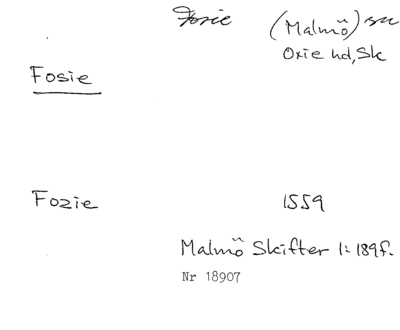 Fosie (Malmö) sn
Oxie hd, Sk
Fosie
Fozie 1559
Malmö Skifter 1:189f.
Nr 18907